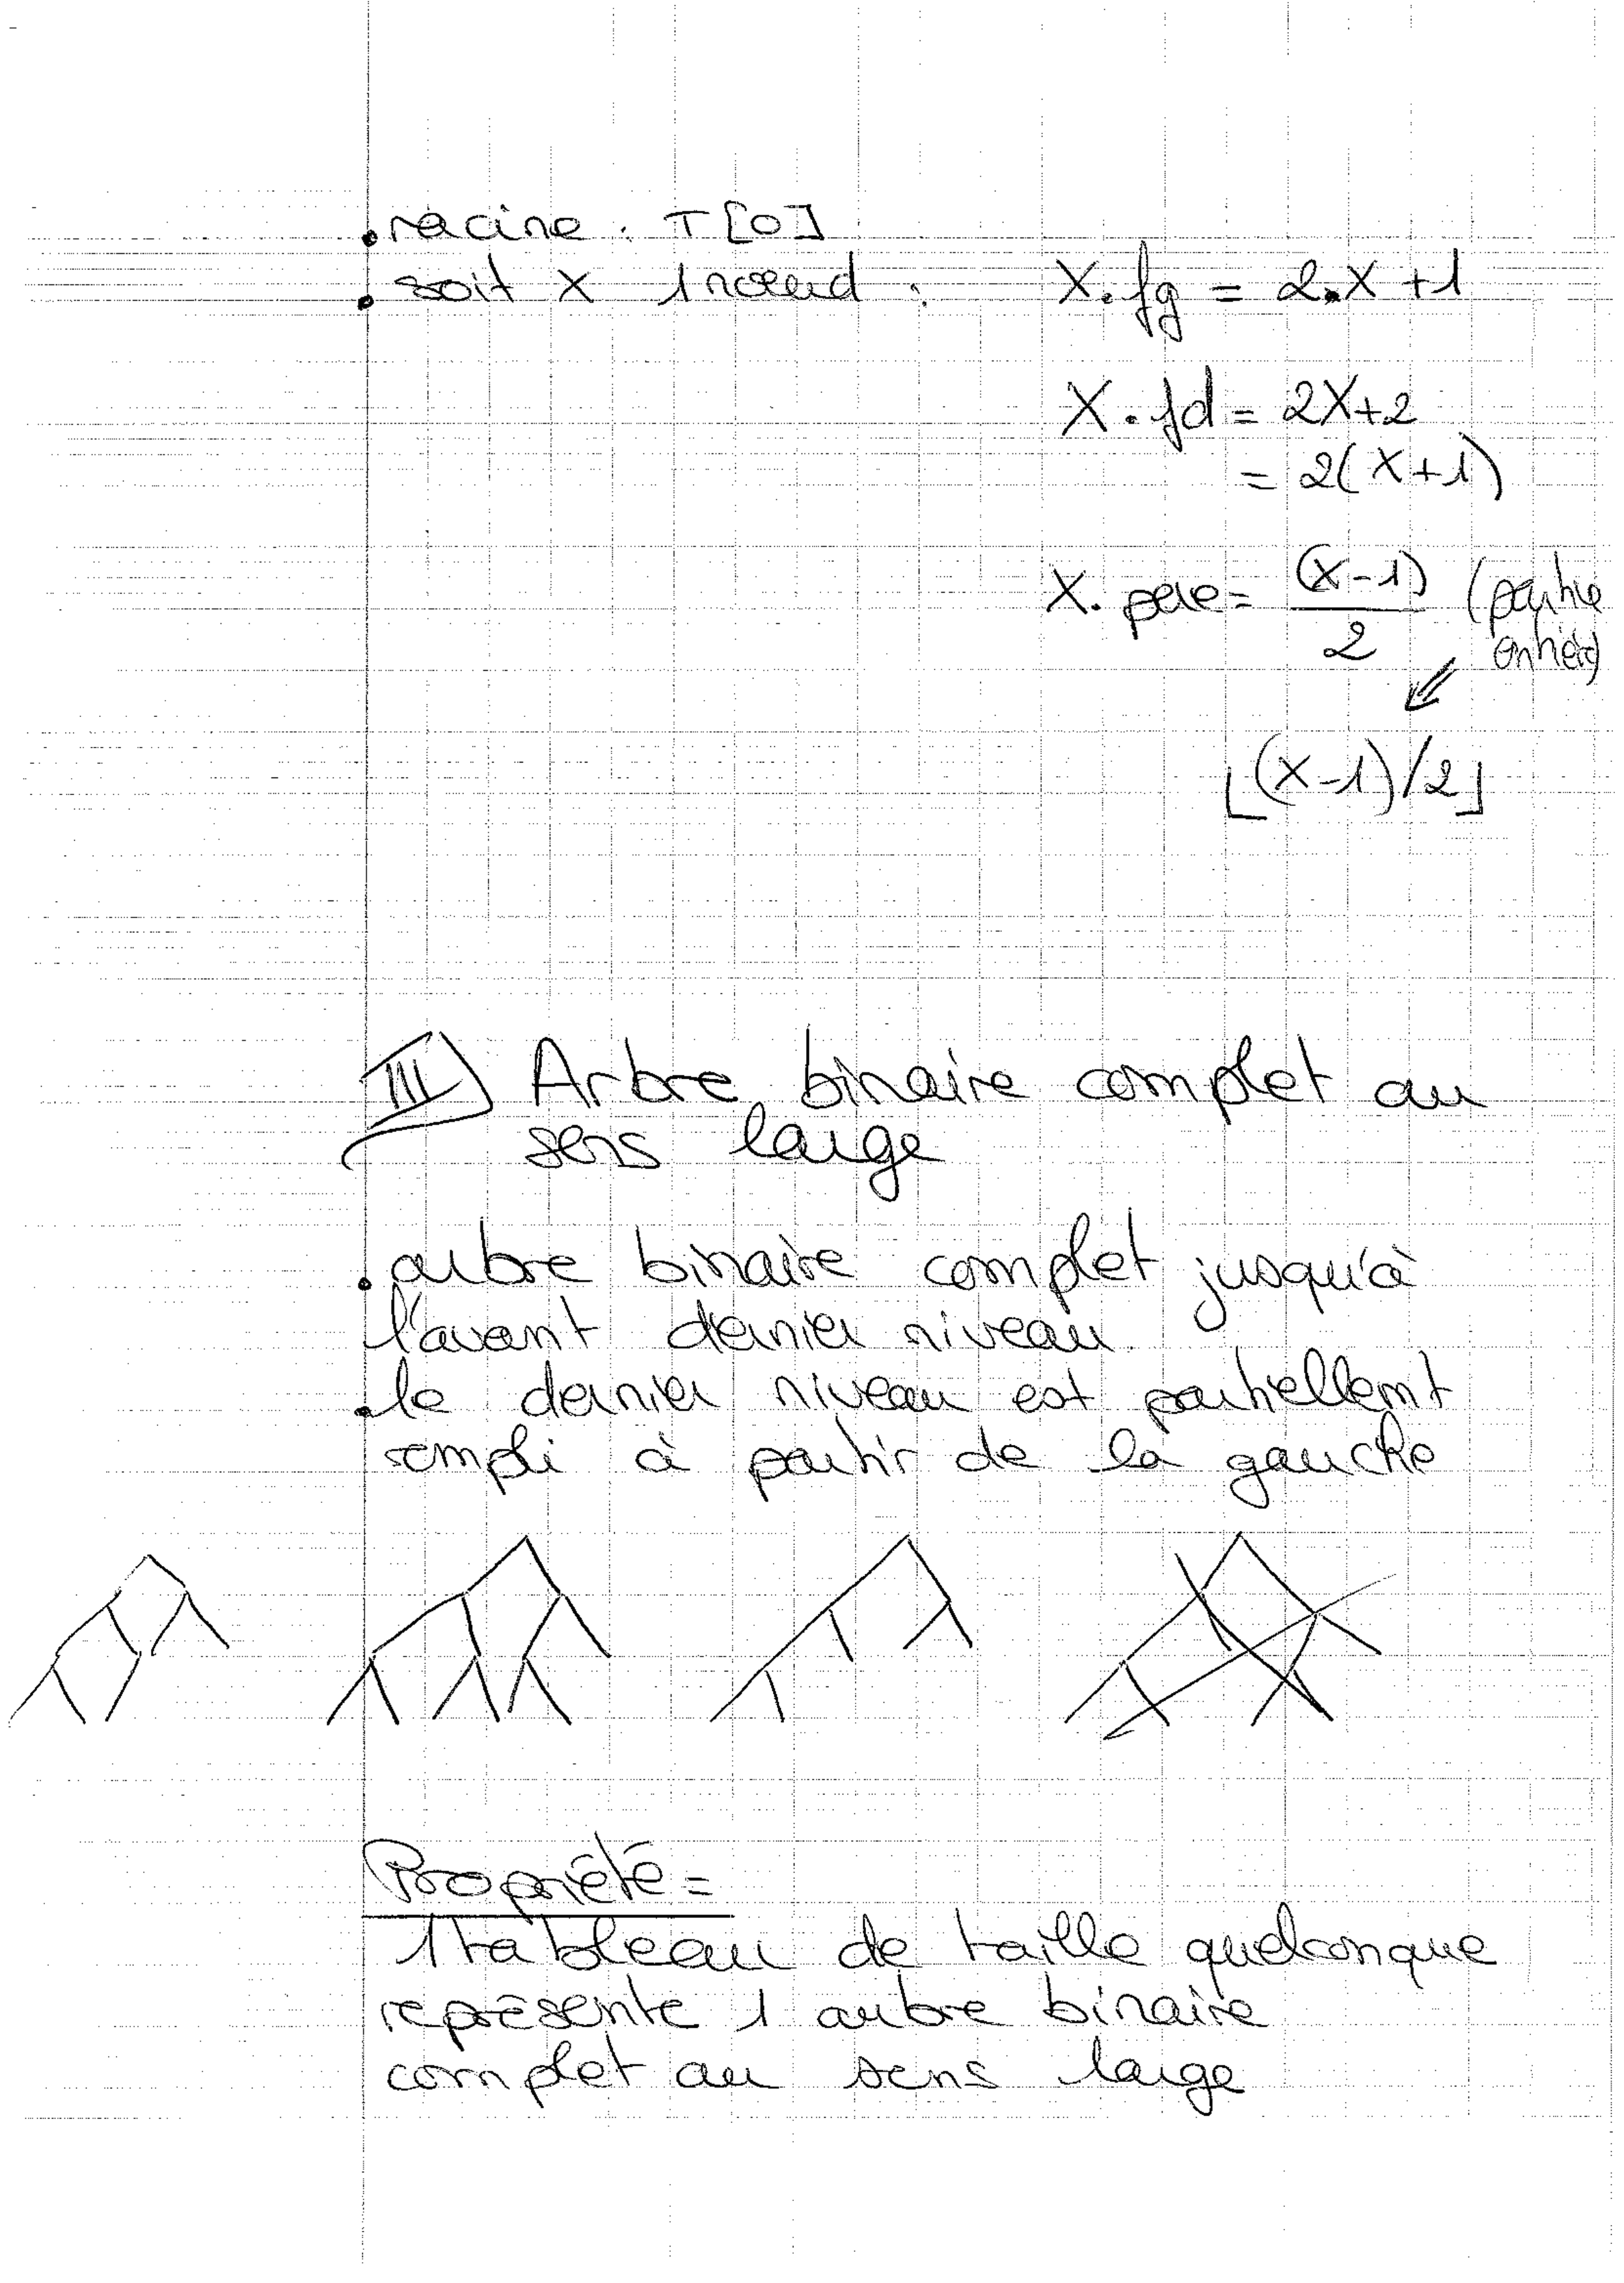 . racine : T[0]
. soit X 1 noeud : X.fg = 2.X + 1
X.fd = 2X+2
= 2(X+1)
X.père = (X-1)/2 (partie
entière)
⌊(X-1)/2⌋
III) Arbre binaire complet au
sens large
. arbre binaire complet jusqu'à
l'avant dernier niveau.
. le dernier niveau est partiellemt
rempli à partir de la gauche
Propriété =
1 tableau de taille quelconque
représente 1 arbre binaire
complet au sens large